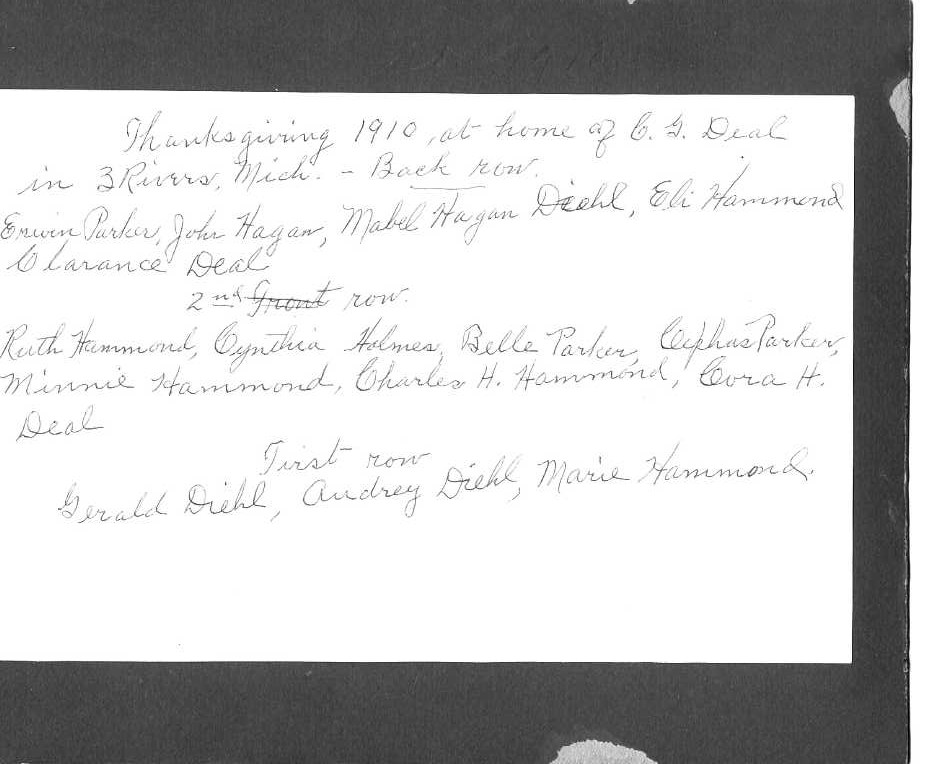 Thanksgiving 1910, at home of C. G. Deal
in 3 Rivers, Mich. - Back row.
Erwin Parker, John Hagan, Mabel Hagan Diehl, Eli Hammond
Clarance Deal
2nd Front row.
Ruth Hammond, Cynthia Holmes, Belle Parker, Cephas Parker,
Minnie Hammond, Charles H. Hammond, Cora H.
Deal
First row
Gerald Diehl, Audrey Diehl, Marie Hammond.